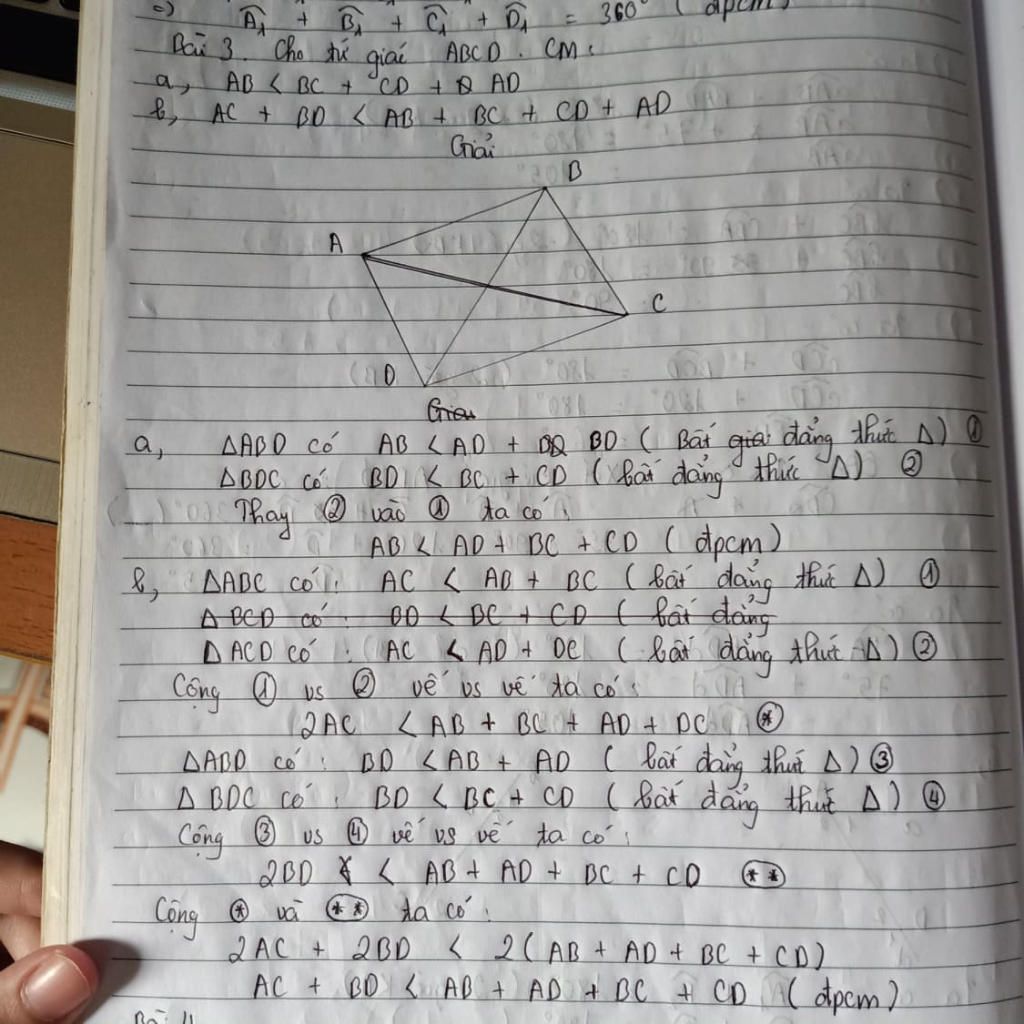 =) Â₁ + B̂₁ + Ĉ₁ + D̂₁ = 360° (đpcm)
Bài 3. Cho tứ giác ABCD. CM:
a, AB < BC + CD + AD
b, AC + BD < AB + BC + CD + AD
Giải
B
A
C
D
Giải
a, ΔABD có AB < AD + BD (Bất đẳng thức Δ) ①
ΔBDC có BD < BC + CD (bất đẳng thức Δ) ②
Thay ② vào ① ta có:
AB < AD + BC + CD (đpcm)
b, ΔABC có: AC < AB + BC (bất đẳng thức Δ) ①
ΔBCD có: BD < BC + CD (bất đẳng
ΔACD có: AC < AD + DC (bất đẳng thức Δ) ②
Cộng ① vs ② vế vs vế ta có:
2AC < AB + BC + AD + DC (*)
ΔABD có: BD < AB + AD (bất đẳng thức Δ) ③
ΔBDC có: BD < BC + CD (bất đẳng thức Δ) ④
Cộng ③ vs ④ vế vs vế ta có:
2BD < AB + AD + BC + CD (**)
Cộng (*) và (**) ta có:
2AC + 2BD < 2(AB + AD + BC + CD)
AC + BD < AB + AD + BC + CD (đpcm)